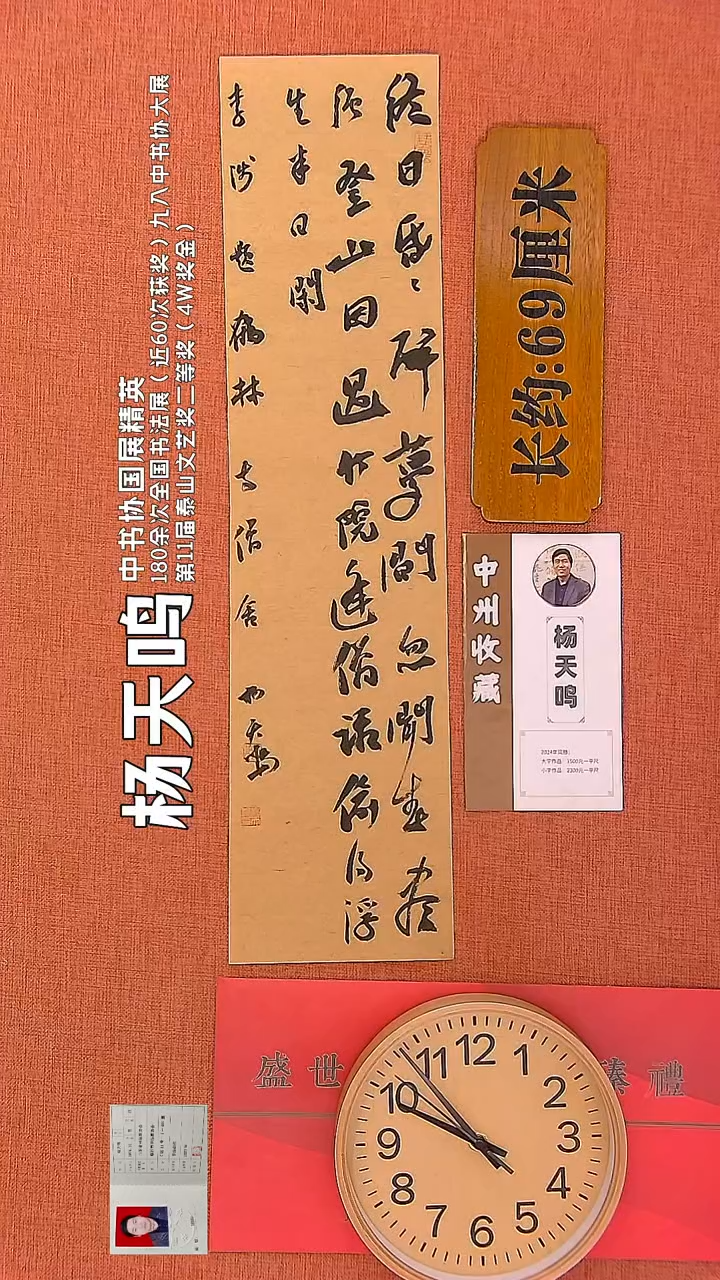 杨天鸣
中书协国展精英
180余次全国书法展（近60次获奖）九八中书协大展
第11届泰山文艺奖二等奖（4W奖金）
终日昏々醉夢間忽聞春盡
强登山因過竹院逢僧話偷得浮
生半日閑
李涉題鶴林寺僧舍 杨天鸣
长约:69厘米
中州收藏
杨天鸣
大字作品：1500元一平尺
小字作品：2300元一平尺
盛世
禮
12
1
2
3
4
5
6
7
8
9
10
11